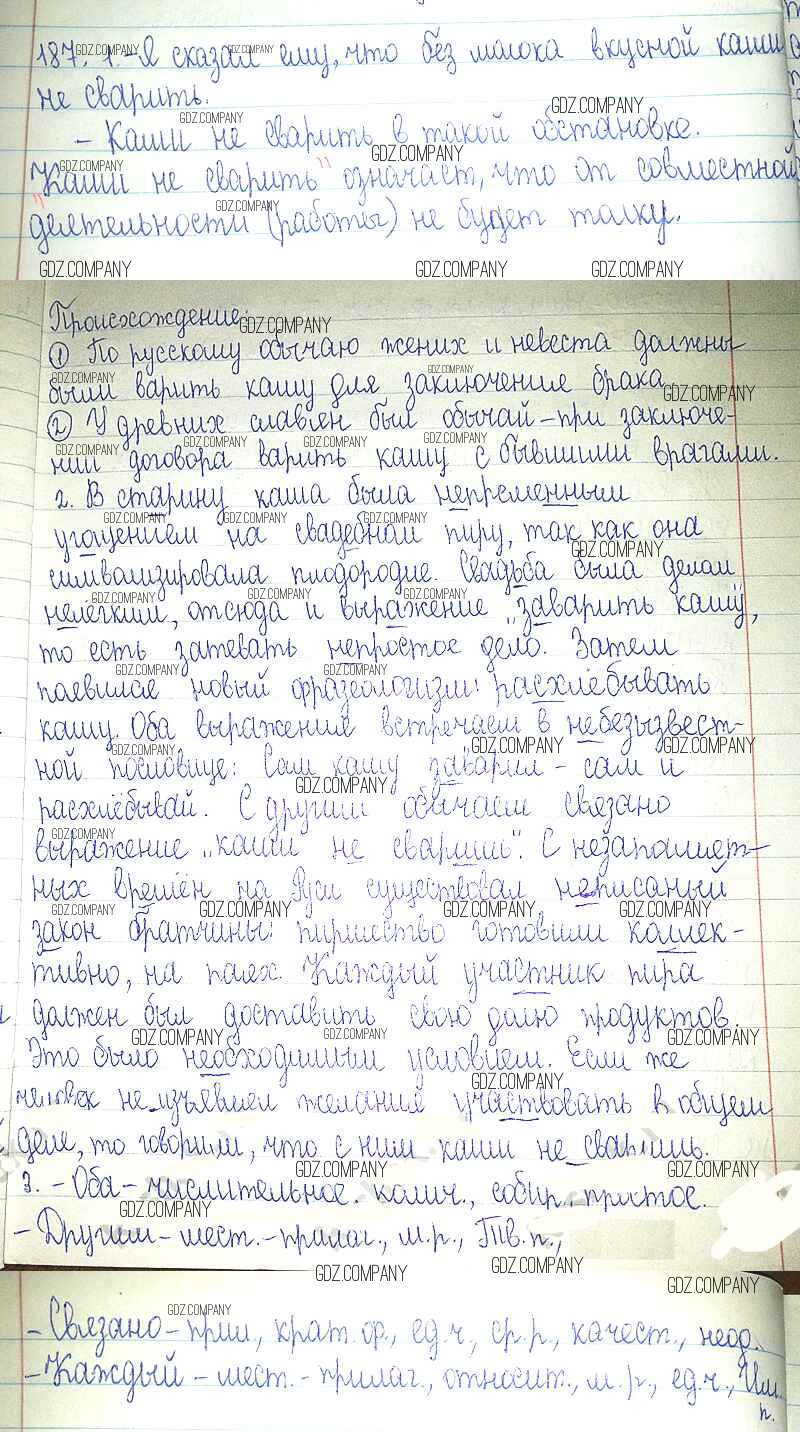 187. 1. - Я сказал ему, что без молока вкусной каши
не сварить.
- Каши не сварить в такой обстановке.
"Каши не сварить" означает, что от совместной
деятельности (работы) не будет толку.
Происхождение:
① По русскому обычаю жених и невеста должны
были варить кашу для заключение брака
② У древних славян был обычай - при заключе-
нии договора варить кашу с бывшими врагами.
2. В старину каша была непременным
угощением на свадебном пиру, так как она
символизировала плодородие. Свадьба была делом
нелёгким, отсюда и выражение "заварить кашу",
то есть затевать непростое дело. Затем
появился новый фразеологизм: расхлёбывать
кашу. Оба выражения встречаем в небезызвест-
ной пословице: Сам кашу заварил - сам и
расхлёбывай. С другим обычаем связано
выражение "каши не сваришь". С незапамят-
ных времён на Руси существовал неписаный
закон братчины: пиршество готовили коллек-
тивно, на паях. Каждый участник пира
должен был доставить свою долю продуктов.
Это было необходимым условием. Если же
человек не изъявлял желания участвовать в общем
деле, то говорили, что с ним каши не сваришь.
3. - Оба - числительное. колич., собир., простое.
- Другим - мест. - прилаг., м.р., Тв.п.,
- Связано - прич., крат. ф., ед.ч., ср.р., качест.,
- Каждый - мест. - прилаг., относит., м.р., ед.ч., Им.
п.
GDZ.COMPANY